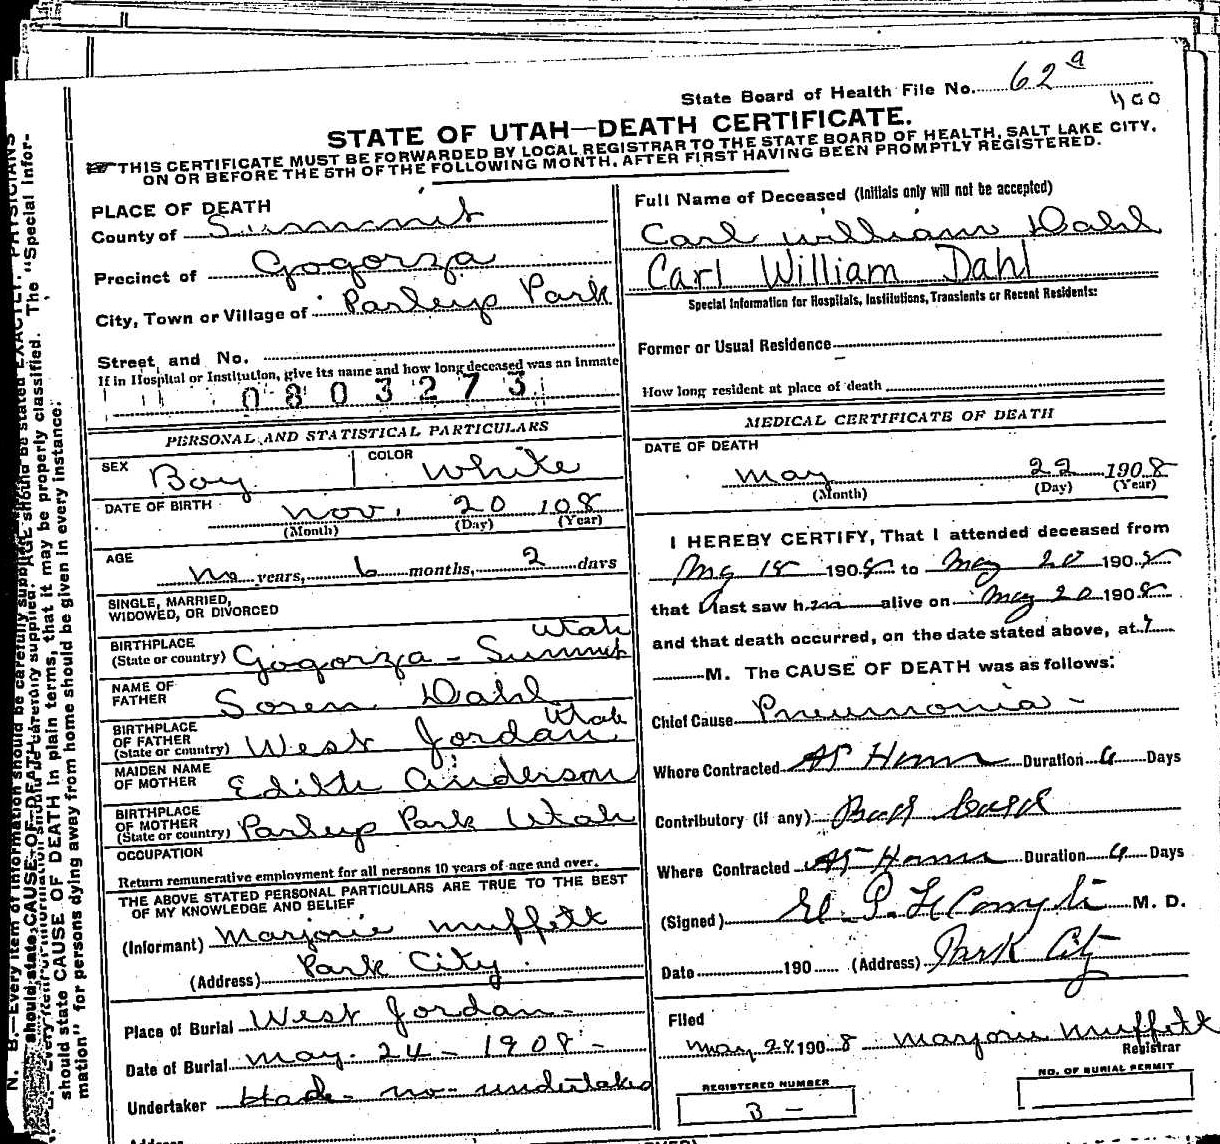 State Board of Health File No. 62 a
400
STATE OF UTAH—DEATH CERTIFICATE.
THIS CERTIFICATE MUST BE FORWARDED BY LOCAL REGISTRAR TO THE STATE BOARD OF HEALTH, SALT LAKE CITY,
ON OR BEFORE THE 5TH OF THE FOLLOWING MONTH, AFTER FIRST HAVING BEEN PROMPTLY REGISTERED.
PLACE OF DEATH
County of Summit
Precinct of Gogorza
City, Town or Village of Parleys Park
Street, and No.
If in Hospital or Institution, give its name and how long deceased was an inmate
0803273
PERSONAL AND STATISTICAL PARTICULARS
SEX Boy COLOR White
DATE OF BIRTH Nov. 20 108
(Month) (Day) (Year)
AGE No years, 6 months, 2 days
SINGLE, MARRIED,
WIDOWED, OR DIVORCED
BIRTHPLACE Utah
(State or country) Gogorza - Summit
NAME OF
FATHER Soren Dahl
BIRTHPLACE
OF FATHER Utah
(State or country) West Jordan
MAIDEN NAME
OF MOTHER Edith Anderson
BIRTHPLACE
OF MOTHER
(State or country) Parleys Park Utah
OCCUPATION
Return remunerative employment for all persons 10 years of age and over.
THE ABOVE STATED PERSONAL PARTICULARS ARE TRUE TO THE BEST
OF MY KNOWLEDGE AND BELIEF
(Informant) Marjorie Muffett
(Address) Park City
Place of Burial West Jordan
Date of Burial May. 24 - 1908 -
Undertaker Had no undertaker
Address
Full Name of Deceased (Initials only will not be accepted)
Carl William Dahl
Carl William Dahl
Special Information for Hospitals, Institutions, Transients or Recent Residents:
Former or Usual Residence
How long resident at place of death
MEDICAL CERTIFICATE OF DEATH
DATE OF DEATH
May 22 1908
(Month) (Day) (Year)
I HEREBY CERTIFY, That I attended deceased from
18 1908 to May 20 1908
that I last saw him alive on May 20 1908
and that death occurred, on the date stated above, at
M. The CAUSE OF DEATH was as follows:
Chief Cause Pneumonia -
Where Contracted At Home Duration Days
Contributory (if any) Bad
Where Contracted At Home Duration Days
(Signed) M. D.
Date 190 (Address) Park City
Filed
May 28 1908 Marjorie Muffett
Registrar
REGISTERED NUMBER
3 -
NO. OF BURIAL PERMIT
should state CAUSE OF DEATH in plain terms, that it may be properly classified. The "Special Infor-
mation" for persons dying away from home should be given in every instance.